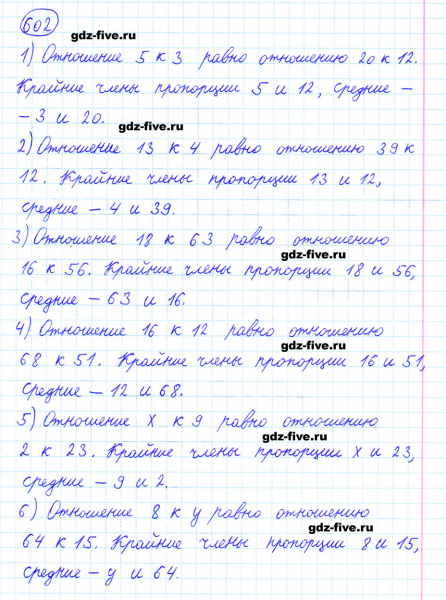 602
gdz-five.ru
1) Отношение 5 к 3 равно отношению 20 к 12.
Крайние члены пропорции 5 и 12, средние –
– 3 и 20.
gdz-five.ru
2) Отношение 13 к 4 равно отношению 39 к
12. Крайние члены пропорции 13 и 12,
средние – 4 и 39.
3) Отношение 18 к 63 равно отношению
gdz-five.ru
16 к 56. Крайние члены пропорции 18 и 56,
средние – 63 и 16.
4) Отношение 16 к 12 равно отношению
gdz-five.ru
68 к 51. Крайние члены пропорции 16 и 51,
средние – 12 и 68.
5) Отношение x к 9 равно отношению
gdz-five.ru
2 к 23. Крайние члены пропорции x и 23,
средние – 9 и 2.
6) Отношение 8 к y равно отношению
gdz-five.ru
64 к 15. Крайние члены пропорции 8 и 15,
средние – y и 64.